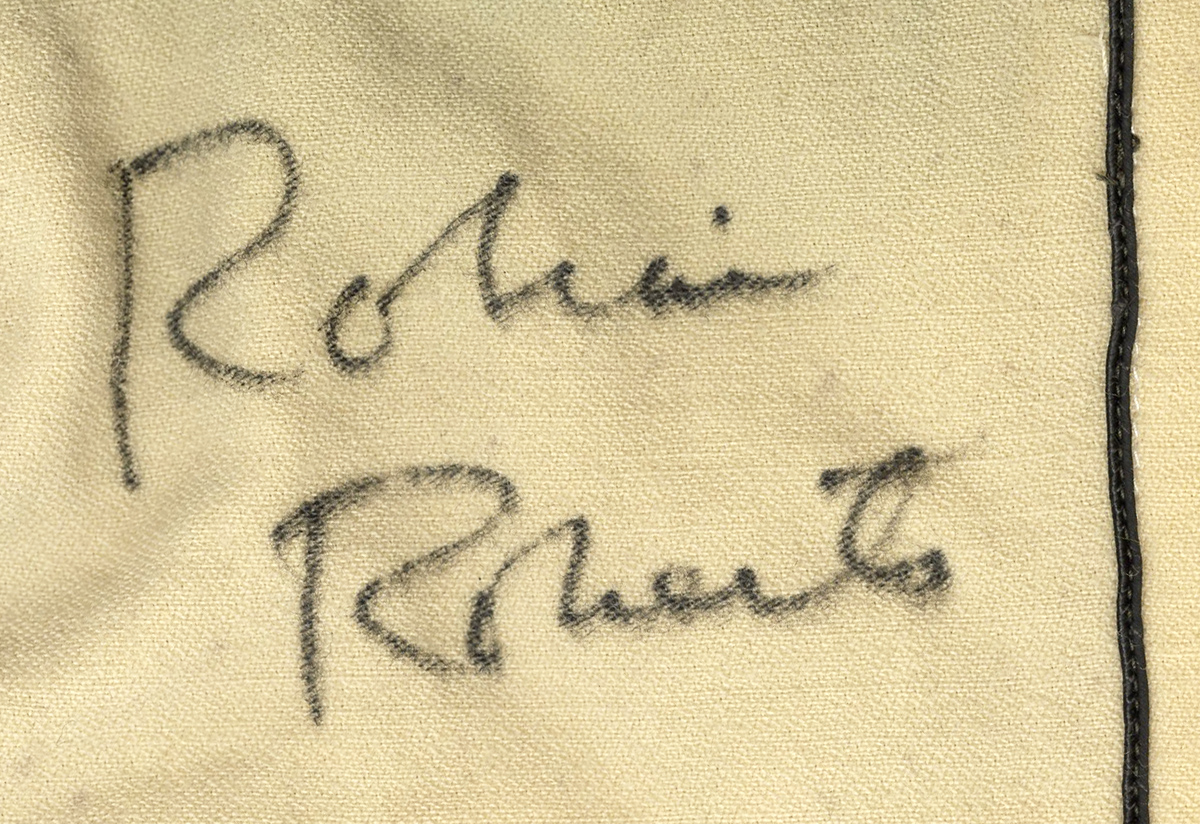 Robin
Roberts